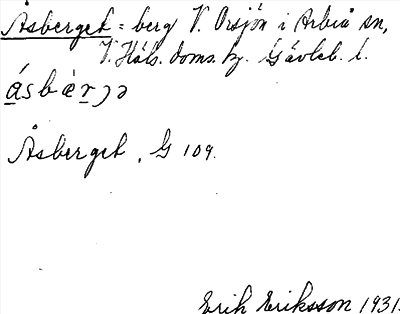 Åsberget = berg V. Orsjön i Arbrå sn,
V. Häls. doms. hj. Gävleb. l.
åsbærjə
Åsberget, G 109.
Erik Eriksson 1931.